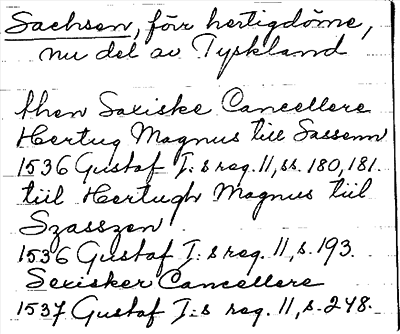 Sachsen, förr hertigdöme,
nu del av Tyskland
then Saxiske Cancellere
Hertug Magnus till Sassenn
1536 Gustaf I:s reg. 11, ss. 180, 181.
tiil Hertugh Magnus tiil
Szasszen
1536 Gustaf I:s reg. 11, s. 193.
Sexisker Cancellere
1537 Gustaf I:s reg. 11, s. 248.